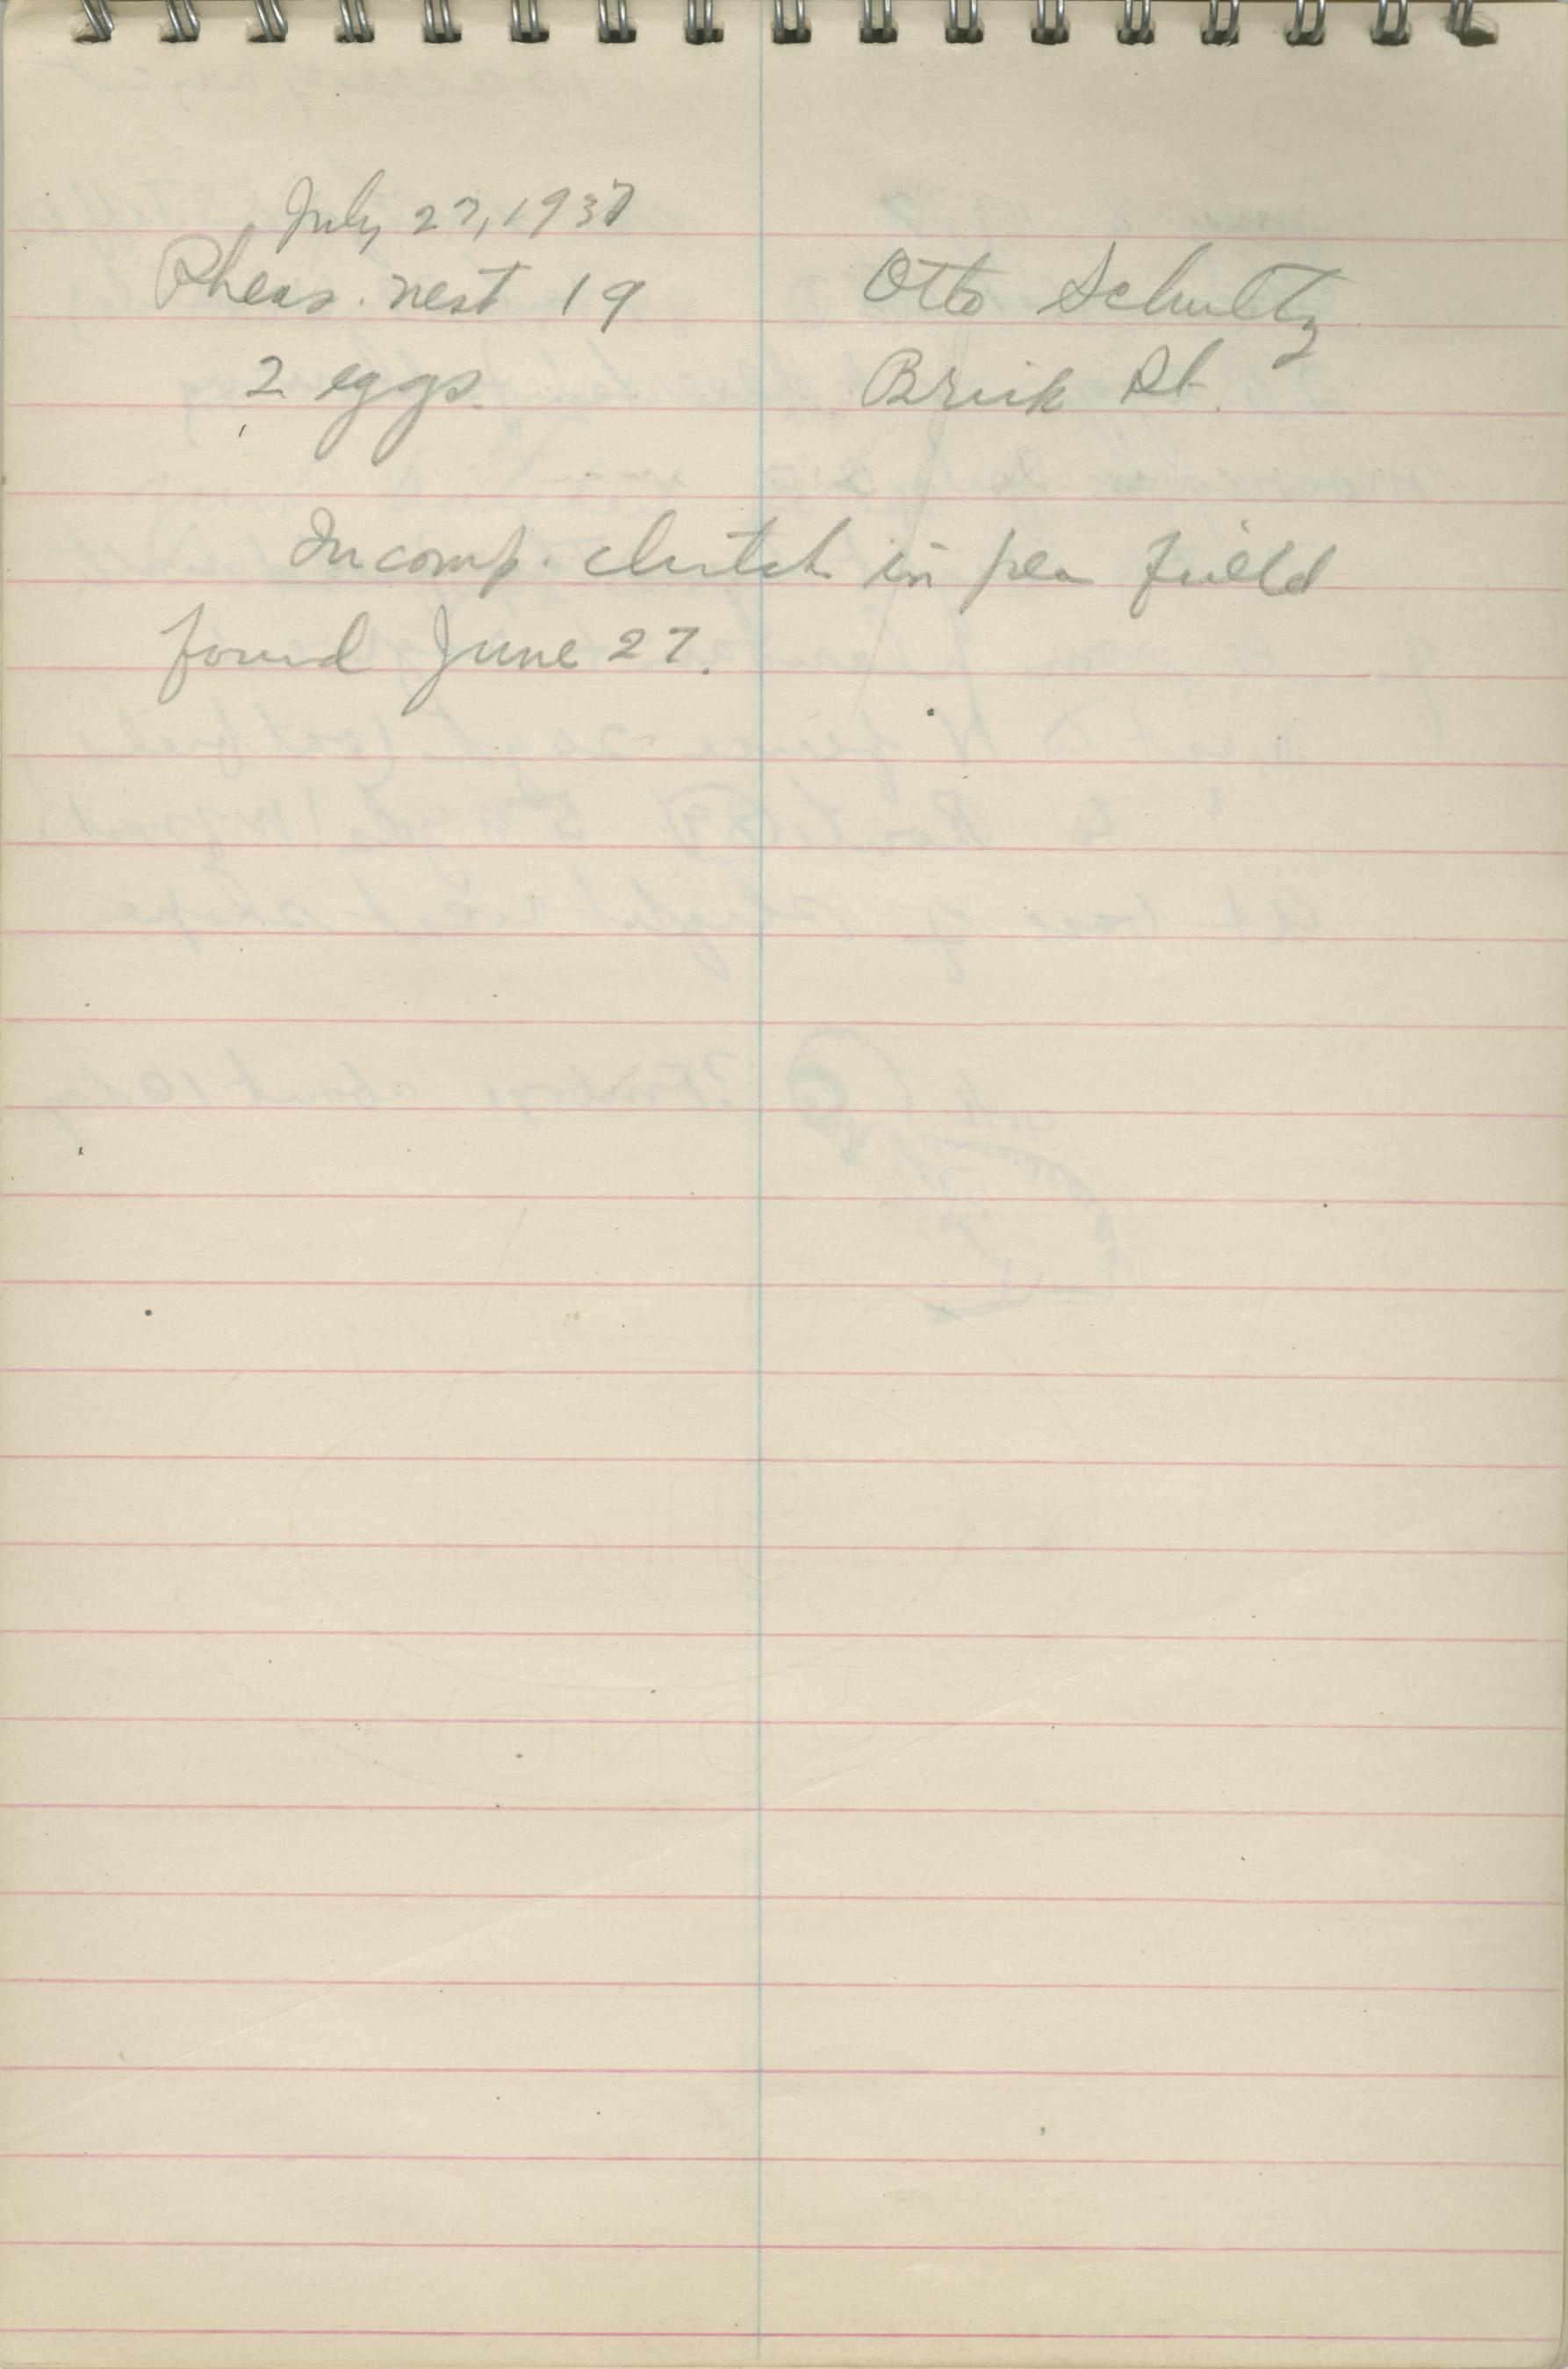 July 27, 1937
Pheas. nest 19
2 eggs.
Otto Schultz
Brick St.
Incomp. clutch in pea field
found June 27.